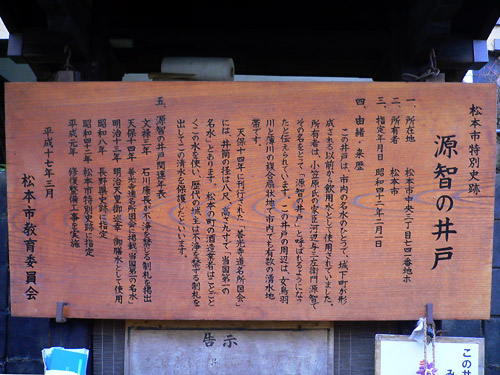 松本市特別史跡
源智の井戸
一、所在地 松本市中央三丁目七四一番地ホ
二、所有者 松本市
三、指定年月日 昭和四十二年二月一日
四、由緒・来歴
この井戸は、市内の名水のひとつで、城下町が形
成される以前から飲用水として使用されていました。
所有者は小笠原氏の家臣河辺与三左衛門源智で
その名をとって「源智の井戸」と呼ばれるようになっ
たと伝えられています。この井戸の周辺は、女鳥羽
川と薄川の複合扇状地で、市内でも有数の湧水地
帯です。
天保十四年に刊行された「善光寺道名所図会」
には、井筒の径は八尺、高さ九寸で、「当国第一の
名水」とあります。松本の町の酒造業者はことごと
くこの水を使い、歴代の城主は不浄を禁ずる制札を
出してこの井水を保護したといいます。
五、源智の井戸関連年表
文禄三年 石川康長が不浄を禁ずる制札を掲出
天保十四年 善光寺道名所図会に掲載、「当国第一の名水」
明治十三年 明治天皇御巡幸 御膳水として使用
昭和四八年 長野県史跡に指定
昭和四十二年 松本市特別史跡に指定
平成元年 修復整備工事を実施
平成十七年三月
松本市教育委員会
告示
この井